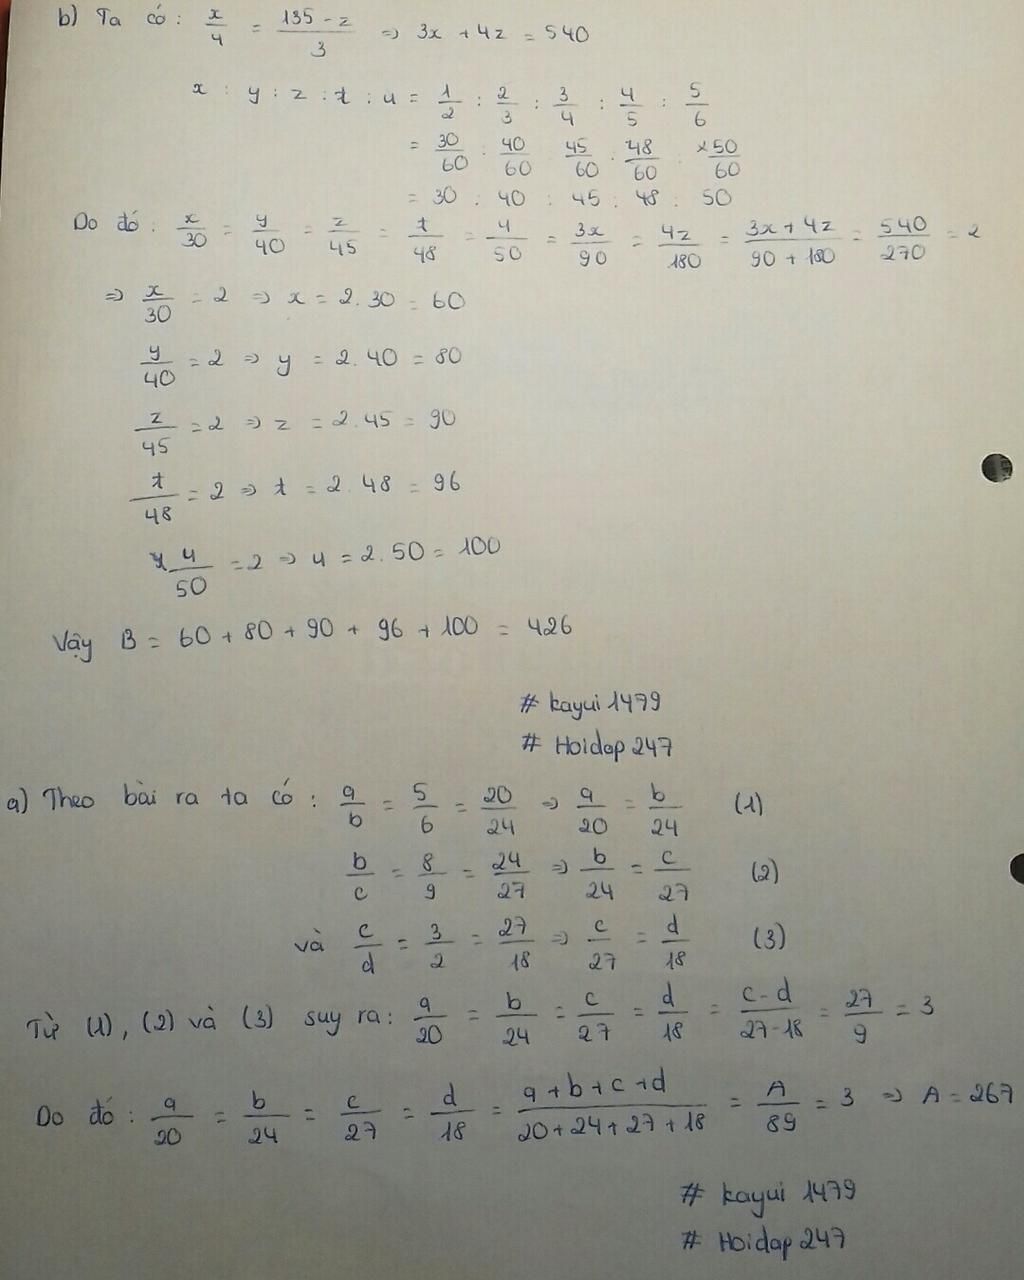 b) Ta có : x/4 = (135 - z)/3 => 3x + 4z = 540
x : y : z : t : u = 1/2 : 2/3 : 3/4 : 4/5 : 5/6
= 30/60 : 40/60 45/60 : 48/60 : 50/60
= 30 : 40 : 45 : 48 : 50
Do đó : x/30 = y/40 = z/45 = t/48 = u/50 = 3x/90 = 4z/180 = (3x + 4z)/(90 + 180) = 540/270 = 2
=> x/30 = 2 => x = 2.30 = 60
y/40 = 2 => y = 2.40 = 80
z/45 = 2 => z = 2.45 = 90
t/48 = 2 => t = 2.48 = 96
u/50 = 2 => u = 2.50 = 100
Vậy B = 60 + 80 + 90 + 96 + 100 = 426
# kayui 1479
# Hoidap 247
a) Theo bài ra ta có : a/b = 5/6 = 20/24 => a/20 = b/24 (1)
b/c = 8/9 = 24/27 => b/24 = c/27 (2)
và c/d = 3/2 = 27/18 => c/27 = d/18 (3)
Từ (1), (2) và (3) suy ra : a/20 = b/24 = c/27 = d/18 = (c - d)/(27 - 18) = 27/9 = 3
Do đó : a/20 = b/24 = c/27 = d/18 = (a + b + c + d)/(20 + 24 + 27 + 18) = A/89 = 3 => A = 267
# kayui 1479
# Hoidap 247